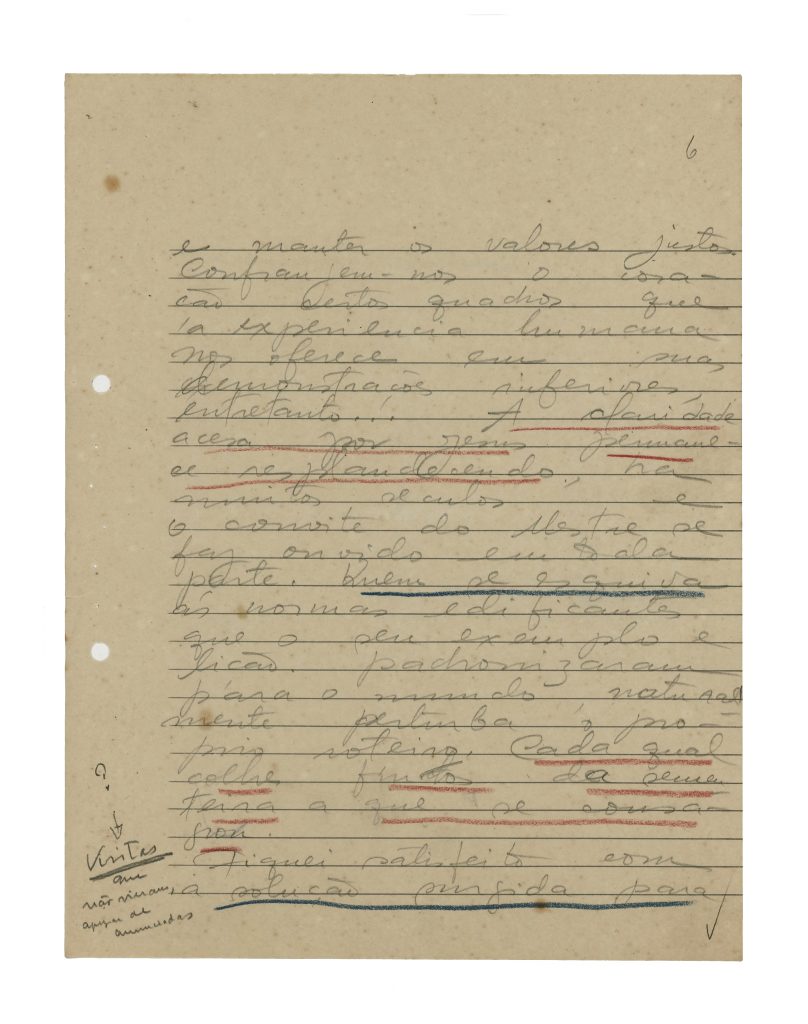 6
e manter os valores justos.
Confranjem-nos o cora-
cão certos quadros que
a experiencia humana
nos oferece em suas
demonstrações inferiores,
entretanto... A claridade
acesa por Jesus permane-
ce resplandecendo, ha
muitos seculos e
o convite do Mestre se
faz ouvido em toda
parte. Quem se esquiva
ás normas edificantes
que o seu exemplo e
licão padronizaram
para o mundo natural
mente perturba o pro-
prio roteiro. Cada qual
colhe frutos da semen
teira a que se consa-
grou.
Fiquei satisfeito com
a solução surgida para
?
Visitas
que
não vieram,
apezar de
anunciadas